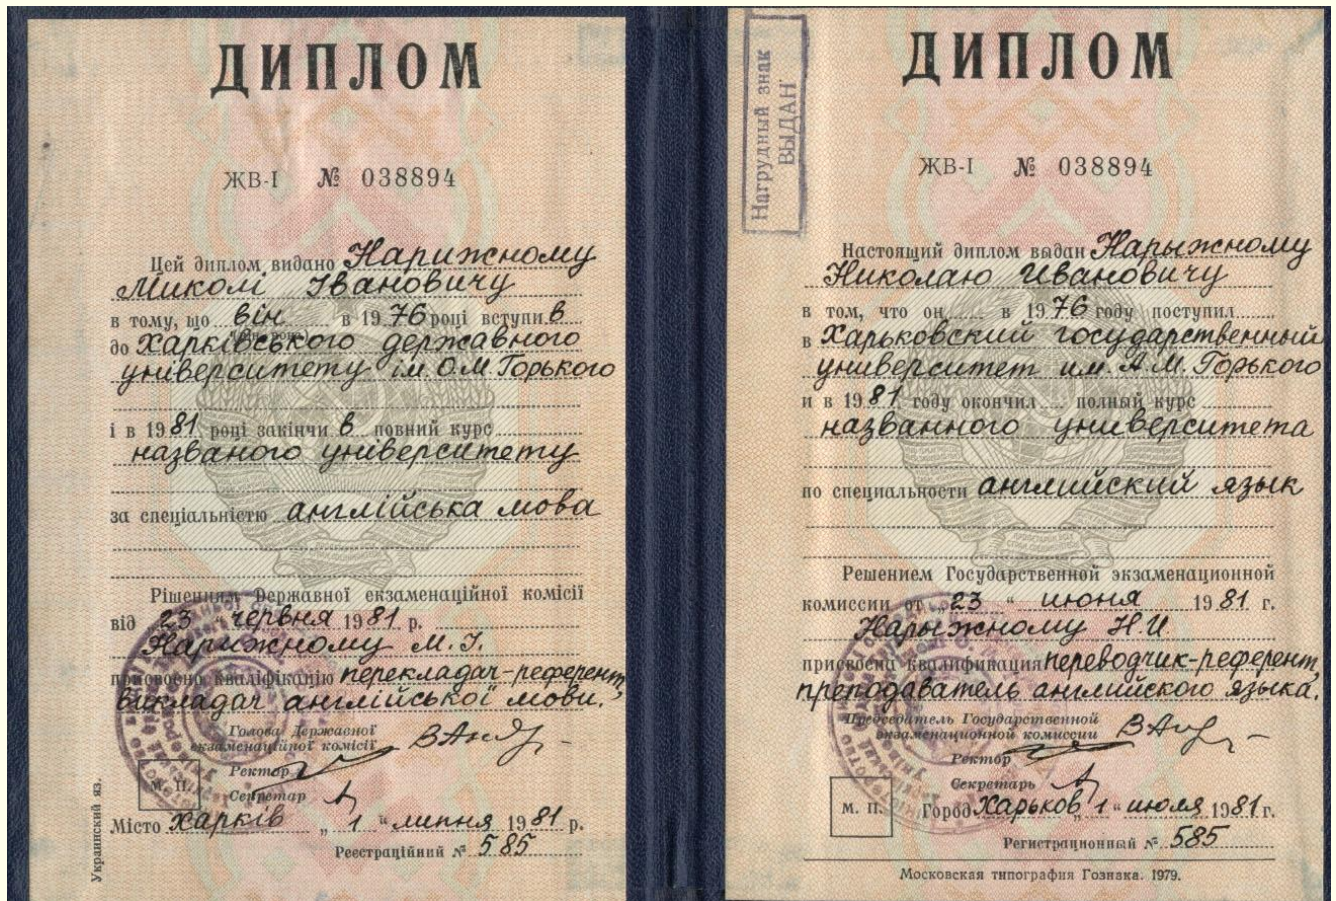 ДИПЛОМ
ЖВ-I № 038894
Цей диплом видано Нарижному
Миколі Івановичу
в тому, що він в 1976 році вступив
до Харківського державного
університету ім. О.М. Горького
і в 1981 році закінчив повний курс
названого університету
за спеціальністю англійська мова
Рішенням Державної екзаменаційної комісії
від 23 червня 1981 р.
Нарижному М.І.
присвоєно кваліфікацію перекладач-референт,
викладач англійської мови.
Голова Державної
екзаменаційної комісії
Ректор
Секретар
М. П.
Місто Харків „1“ липня 1981 р.
Реєстраційний № 585
Украинский яз.
Нагрудный знак
ВЫДАН
ДИПЛОМ
ЖВ-I № 038894
Настоящий диплом выдан Нарыжному
Николаю Ивановичу
в том, что он в 1976 году поступил
в Харьковский государственный
университет им. А.М. Горького
и в 1981 году окончил полный курс
названного университета
по специальности английский язык
Решением Государственной экзаменационной
комиссии от „23“ июня 1981 г.
Нарыжному Н.И.
присвоена квалификация переводчик-референт,
преподаватель английского языка.
Председатель Государственной
экзаменационной комиссии
Ректор
Секретарь
М. П.
Город Харьков „1“ июля 1981 г.
Регистрационный № 585
Московская типография Гознака. 1979.